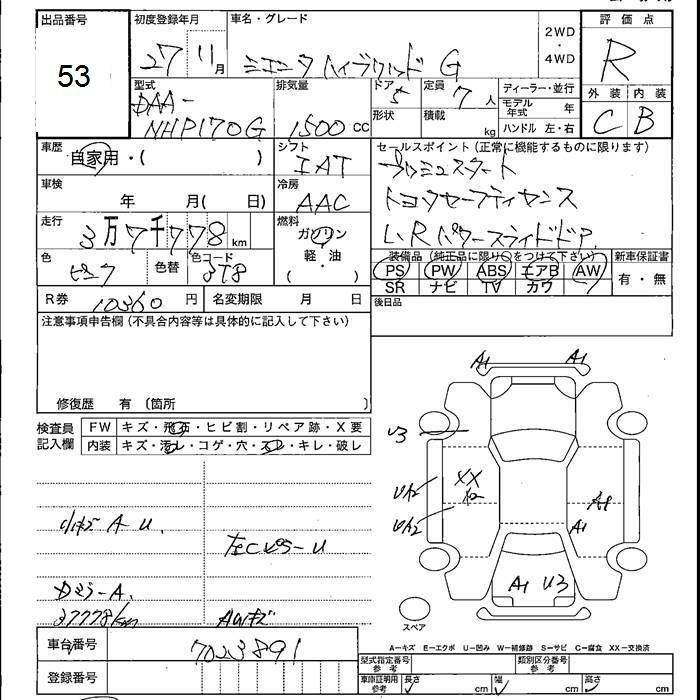 出品番号
53
初度登録年月
27 11月
車名・グレード
シエンタ ハイブリッド G
2WD
・
4WD
評価点
R
外装 内装
C B
型式
DAA-
NHP170G
排気量
1500 cc
ドア
5
形状
定員
7 人
積載
kg
ディーラー・並行
モデル年式 年
ハンドル 左・右
車歴
自家用・( )
シフト
IAT
車検
年 月( 日)
冷房
AAC
走行
3万7千778 km
燃料
ガソリン
軽・油
( )
色
ピンク
色替
色コード
3T8
R券 10360 円
名変期限 月 日
セールスポイント(正常に機能するものに限ります)
プッシュスタート
トヨタセーフティセンス
L・Rパワースライドドア
装備品(純正品に限り○をつけて下さい)
PS PW ABS エアB AW
SR ナビ TV カワ
新車保証書
有・無
後日品
注意事項申告欄(不具合内容等は具体的に記入して下さい)
修復歴 有〔箇所 〕
検査員
記入欄
FW キズ・飛石・ヒビ割・リペア跡・X要
内装 キズ・汚レ・コゲ・穴・スレ・キレ・破レ
小キズ A U.
左Cピラ-U
37778km
AWキズ
A1 A1
U3
XX
UA2
UA2
A1
A1 U3
スペア
A-キズ E-エクボ U-凹み W-補修跡 S-サビ C-腐食 XX-交換済
車台番号
7023891
登録番号
型式指定番号
参考
類別区分番号
参考
車庫証明用
参考
長さ cm
幅 cm
高さ cm